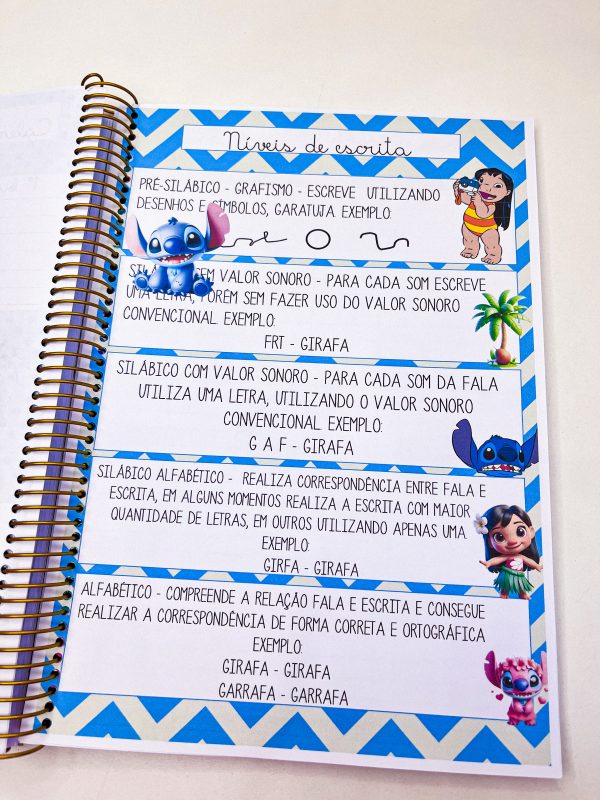 Níveis de escrita
PRÉ-SILÁBICO - GRAFISMO - ESCREVE UTILIZANDO
DESENHOS E SÍMBOLOS, GARATUJA. EXEMPLO:
SEM VALOR SONORO - PARA CADA SOM ESCREVE
UMA LETRA, PORÉM SEM FAZER USO DO VALOR SONORO
CONVENCIONAL. EXEMPLO:
FRT - GIRAFA
SILÁBICO COM VALOR SONORO - PARA CADA SOM DA FALA
UTILIZA UMA LETRA, UTILIZANDO O VALOR SONORO
CONVENCIONAL. EXEMPLO:
G A F - GIRAFA
SILÁBICO ALFABÉTICO - REALIZA CORRESPONDÊNCIA ENTRE FALA E
ESCRITA, EM ALGUNS MOMENTOS REALIZA A ESCRITA COM MAIOR
QUANTIDADE DE LETRAS, EM OUTROS UTILIZANDO APENAS UMA
EXEMPLO:
GIRFA - GIRAFA
ALFABÉTICO - COMPREENDE A RELAÇÃO FALA E ESCRITA E CONSEGUE
REALIZAR A CORRESPONDÊNCIA DE FORMA CORRETA E ORTOGRÁFICA
EXEMPLO:
GIRAFA - GIRAFA
GARRAFA - GARRAFA